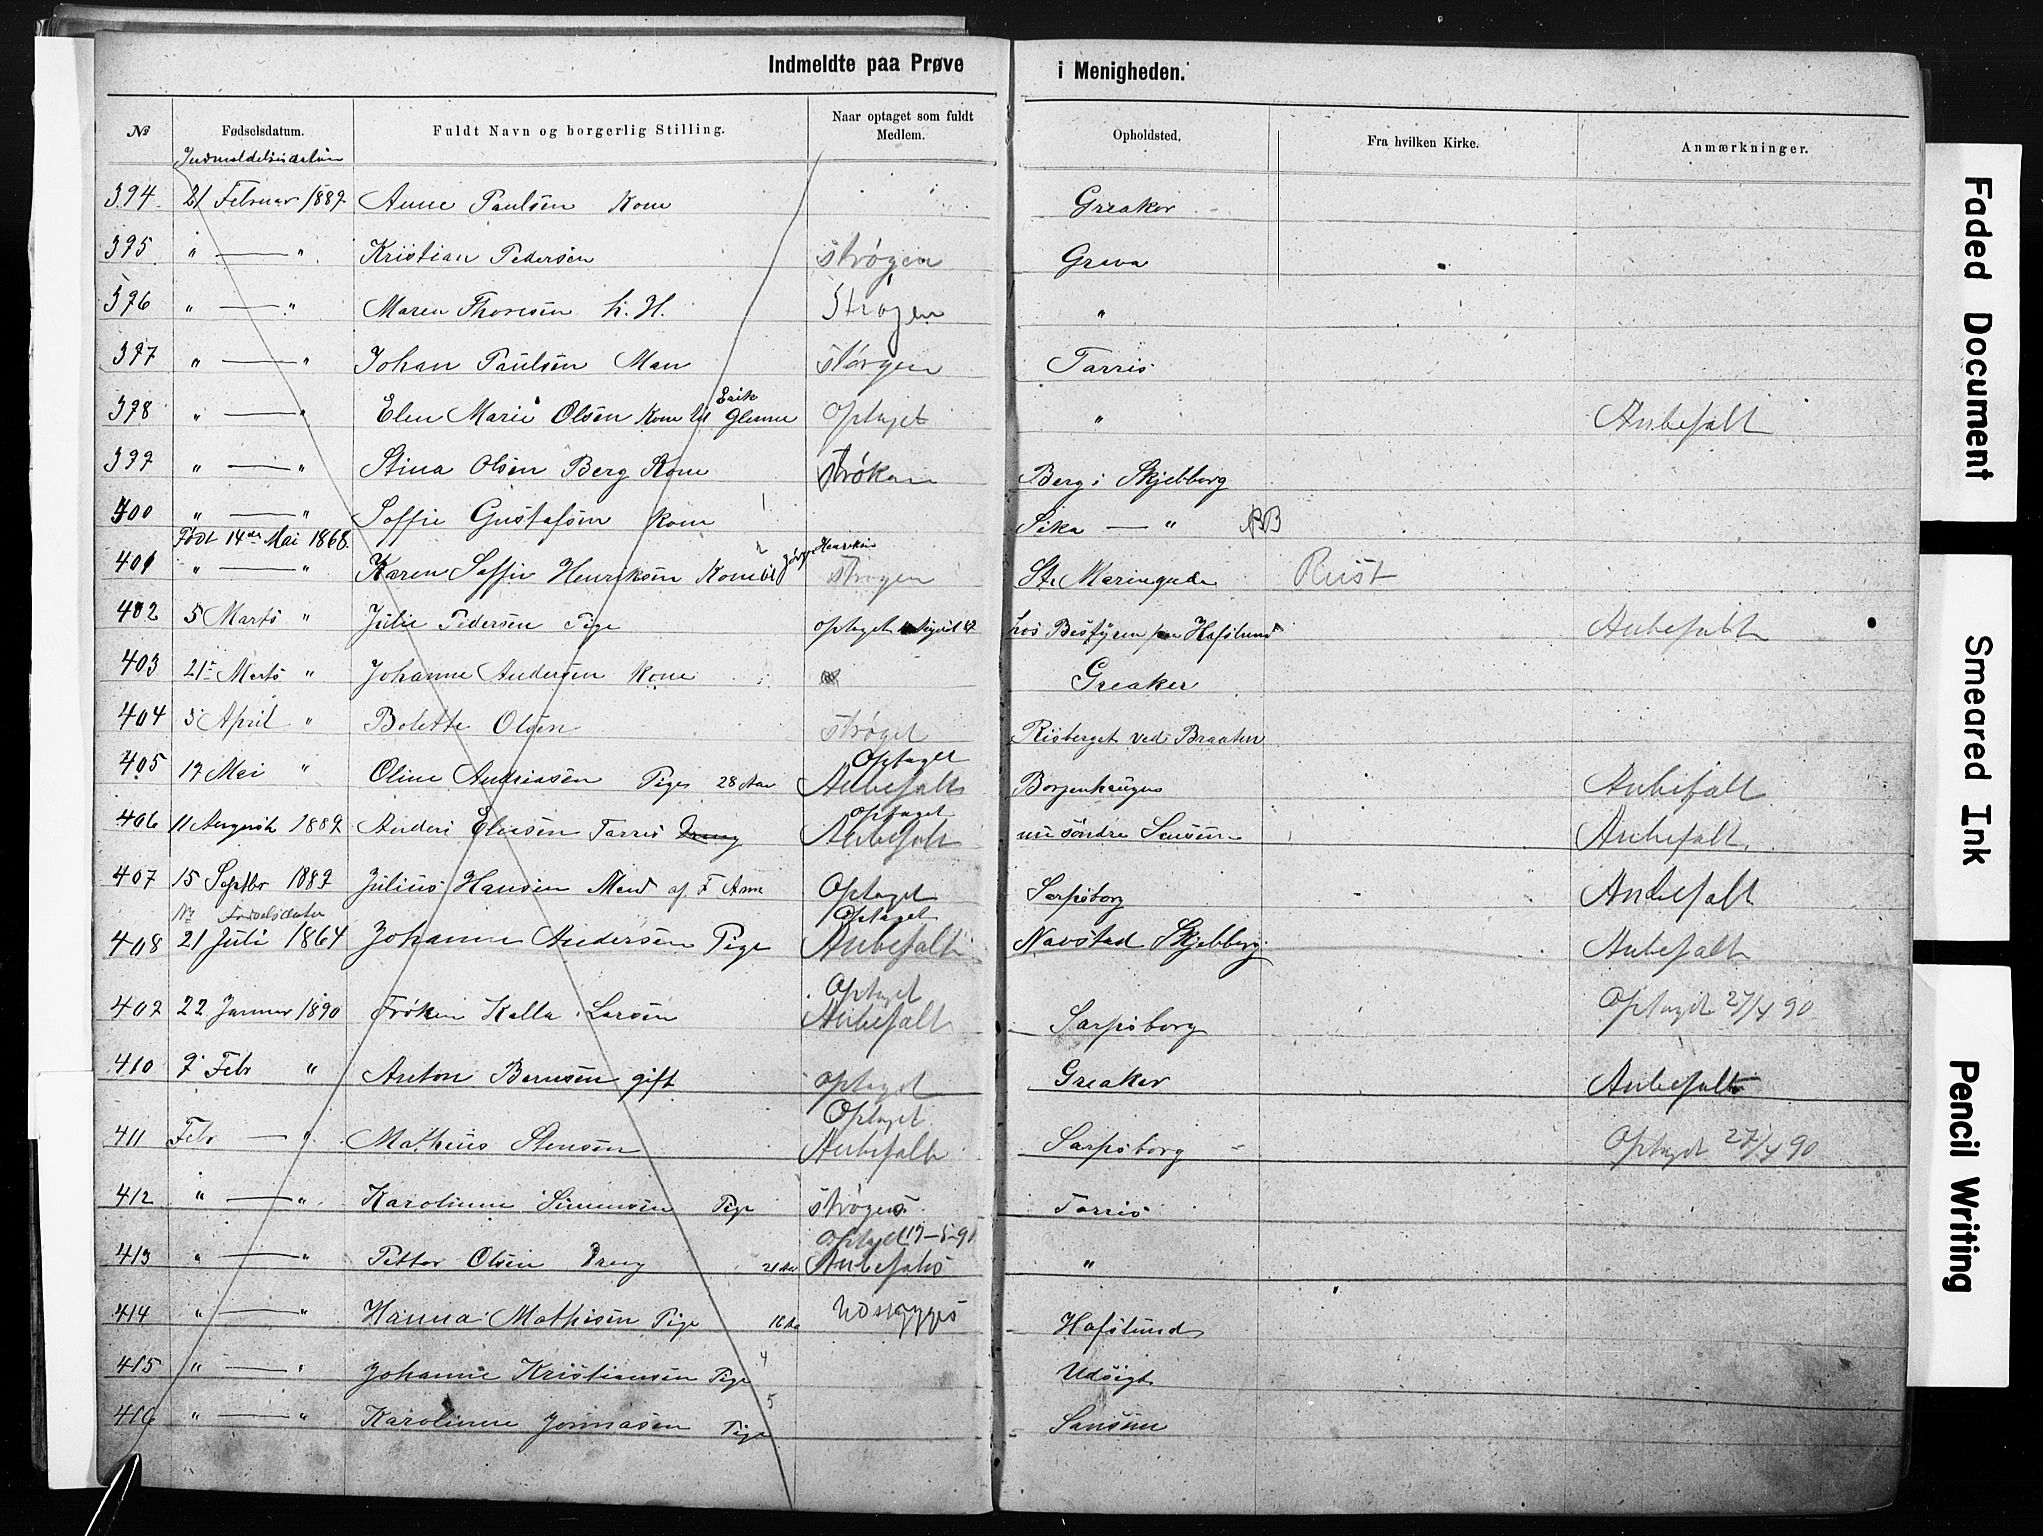 Indmeldte paa Prøve i Menigheden.
№ Fødselsdatum. Fuldt Navn og borgerlig Stilling. Naar optaget som fuldt Medlem. Opholdsted. Fra hvilken Kirke. Anmærkninger.
Indmeldelsesdatum
394 21 Februar 1889 Anne Paulsen Kone Greaker
395 " — " Kristian Pedersen strøgen Greva
396 " — " Maren Thoresen h. H. Strøgen "
397 " — " Johan Paulsen Man strøgen Tarris
398 " — " Elen Marie Olsen Kone til Erik Glenne optaget " Anbefalt
399 " — " Stina Olsen Berg Kone strøken Berg i Skjebberg
400 " — " Soffie Gustafsen Kone Sika — "
Født 14de Mai 1868.
401 " — " Karen Soffie Henriksen Kone til Henriksen strøgen St. Mariegade Rust
402 5 Marts " Julie Pedersen Pige optaget hos Bestyren paa Hafslund Anbefalt
403 21 Marts " Johanne Andersen Kone Greaker
404 5 April " Bolette Olsen strøget Risberget ved Braaten
405 19 Mai " Oline Andriasen Pige 28 Aar Optaget Anbefalt Borgenhaugen Anbefalt
406 11 August 1889 Anders Eliesen Tarris Dreng optaget Anbefalt nu søndre Sensum Anbefalt
407 15 Septbr 1889 Julius Hansen Med af F Arm Optaget Sarpsborg Anbefalt
Fødselsdato
408 21 Juli 1864 Johanne Andersen Pige Optaget Anbefalt Navstad Skjebberg Anbefalt
409 22 Januar 1890 Frøken Kalla Larsen Optaget Anbefalt Sarpsborg Optaget 27/4 90
410 9 Febr " Anton Bernsen gift optaget Greaker Anbefalt
411 Febr — " Mathius Stensen Optaget Anbefalt Sarpsborg Optaget 27/4 90
412 " — " Karolinne Simensen Pige strøges Tarris
413 " — " Petter Olsen Dreng 21 Aar optaget 19-5-90 Anbefales "
414 " — " Hanna Mathisen Pige 18 Aar Udstrygges Hafslund
415 " — " Johanne Kristiansen Pige 4 Udsigt
416 " — " Karolinne Jonnasen Pige 5 Sansum
Faded Document
Smeared Ink
Pencil Writing